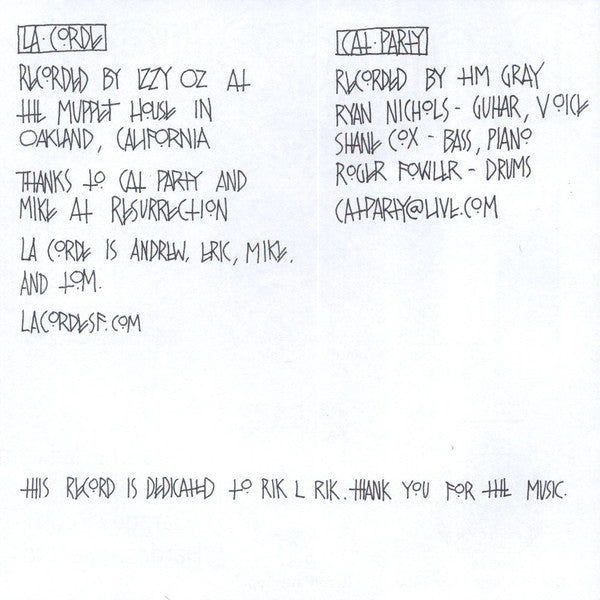 LA·CORDE
RECORDED BY IZZY OZ AT
THE MUPPET HOUSE IN
OAKLAND, CALIFORNIA
THANKS TO CAT PARTY AND
MIKE AT RESURRECTION
LA CORDE IS ANDREW, ERIC, MIKE,
AND TOM.
LACORDESF.COM
CAT·PARTY
RECORDED BY TIM GRAY
RYAN NICHOLS - GUITAR, VOICE
SHANE COX - BASS, PIANO
ROGER FOWLER - DRUMS
CATPARTY@LIVE.COM
THIS RECORD IS DEDICATED TO RIK L RIK. THANK YOU FOR THE MUSIC.